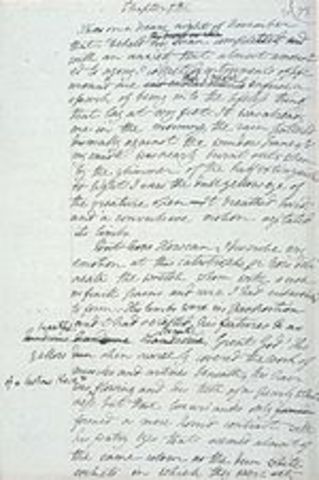 Chapter 7
It was on a dreary night of November
that I beheld my man compleated and
with an anxiety that almost amount
ed to agony I collected instruments of life
around me
a spark of being into the lifeless thing
that lay at my feet. It was already
one in the morning, the rain pattered
dismally against the window panes &
my candle was nearly burnt out when
by the glimmer of the half extinguished
light I saw the dull yellow eye of
the creature open It breathed hard,
and a convulsive motion agitated
its limbs.
But how how can I describe my
emotion at this catastrophe; or how deli
neate the wretch whom with such
infinite pains and care I had endeavoured
to form. His limbs were in proportion
and I had selected his features as
handsome Great God! His
skin scarcely covered the work of
muscles and arteries beneath; his hair
of a lustrous black
flowing and his teeth of a pearly white
ness but these luxuriances only
formed a more horrid contrast with
his watry eyes that seemed almost of
the same colour as the dun white
sockets in which they were set